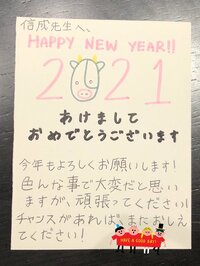 信成先生へ、
HAPPY NEW YEAR!!
2021
あけまして
おめでとうございます
今年もよろしくお願いします!
色んな事で大変だと思い
ますが、頑張ってください!
チャンスがあれば、またおしえ
てください!
HAVE A GOOD DAY!